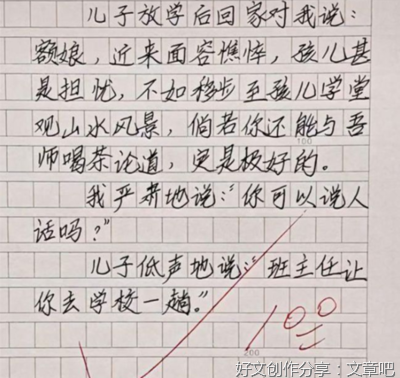 儿子放学后回家对我说：
额娘，近来面容憔悴，孩儿甚
是担忧，不如移步至孩儿学堂
观山水风景，倘若你还能与吾
师喝茶论道，定是极好的。
100
我严肃地说："你可以说人
话吗？"
儿子低声地说："班主任让
你去学校一趟。"
100
200
好文创作分享：文章吧